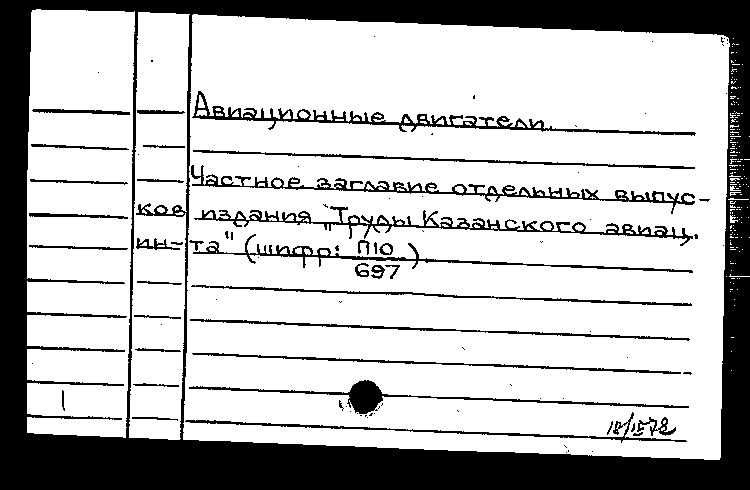 Авиационные двигатели.
Частное заглавие отдельных выпус-
ков издания "Труды Казанского авиац.
ин-та" (шифр: П10/697).